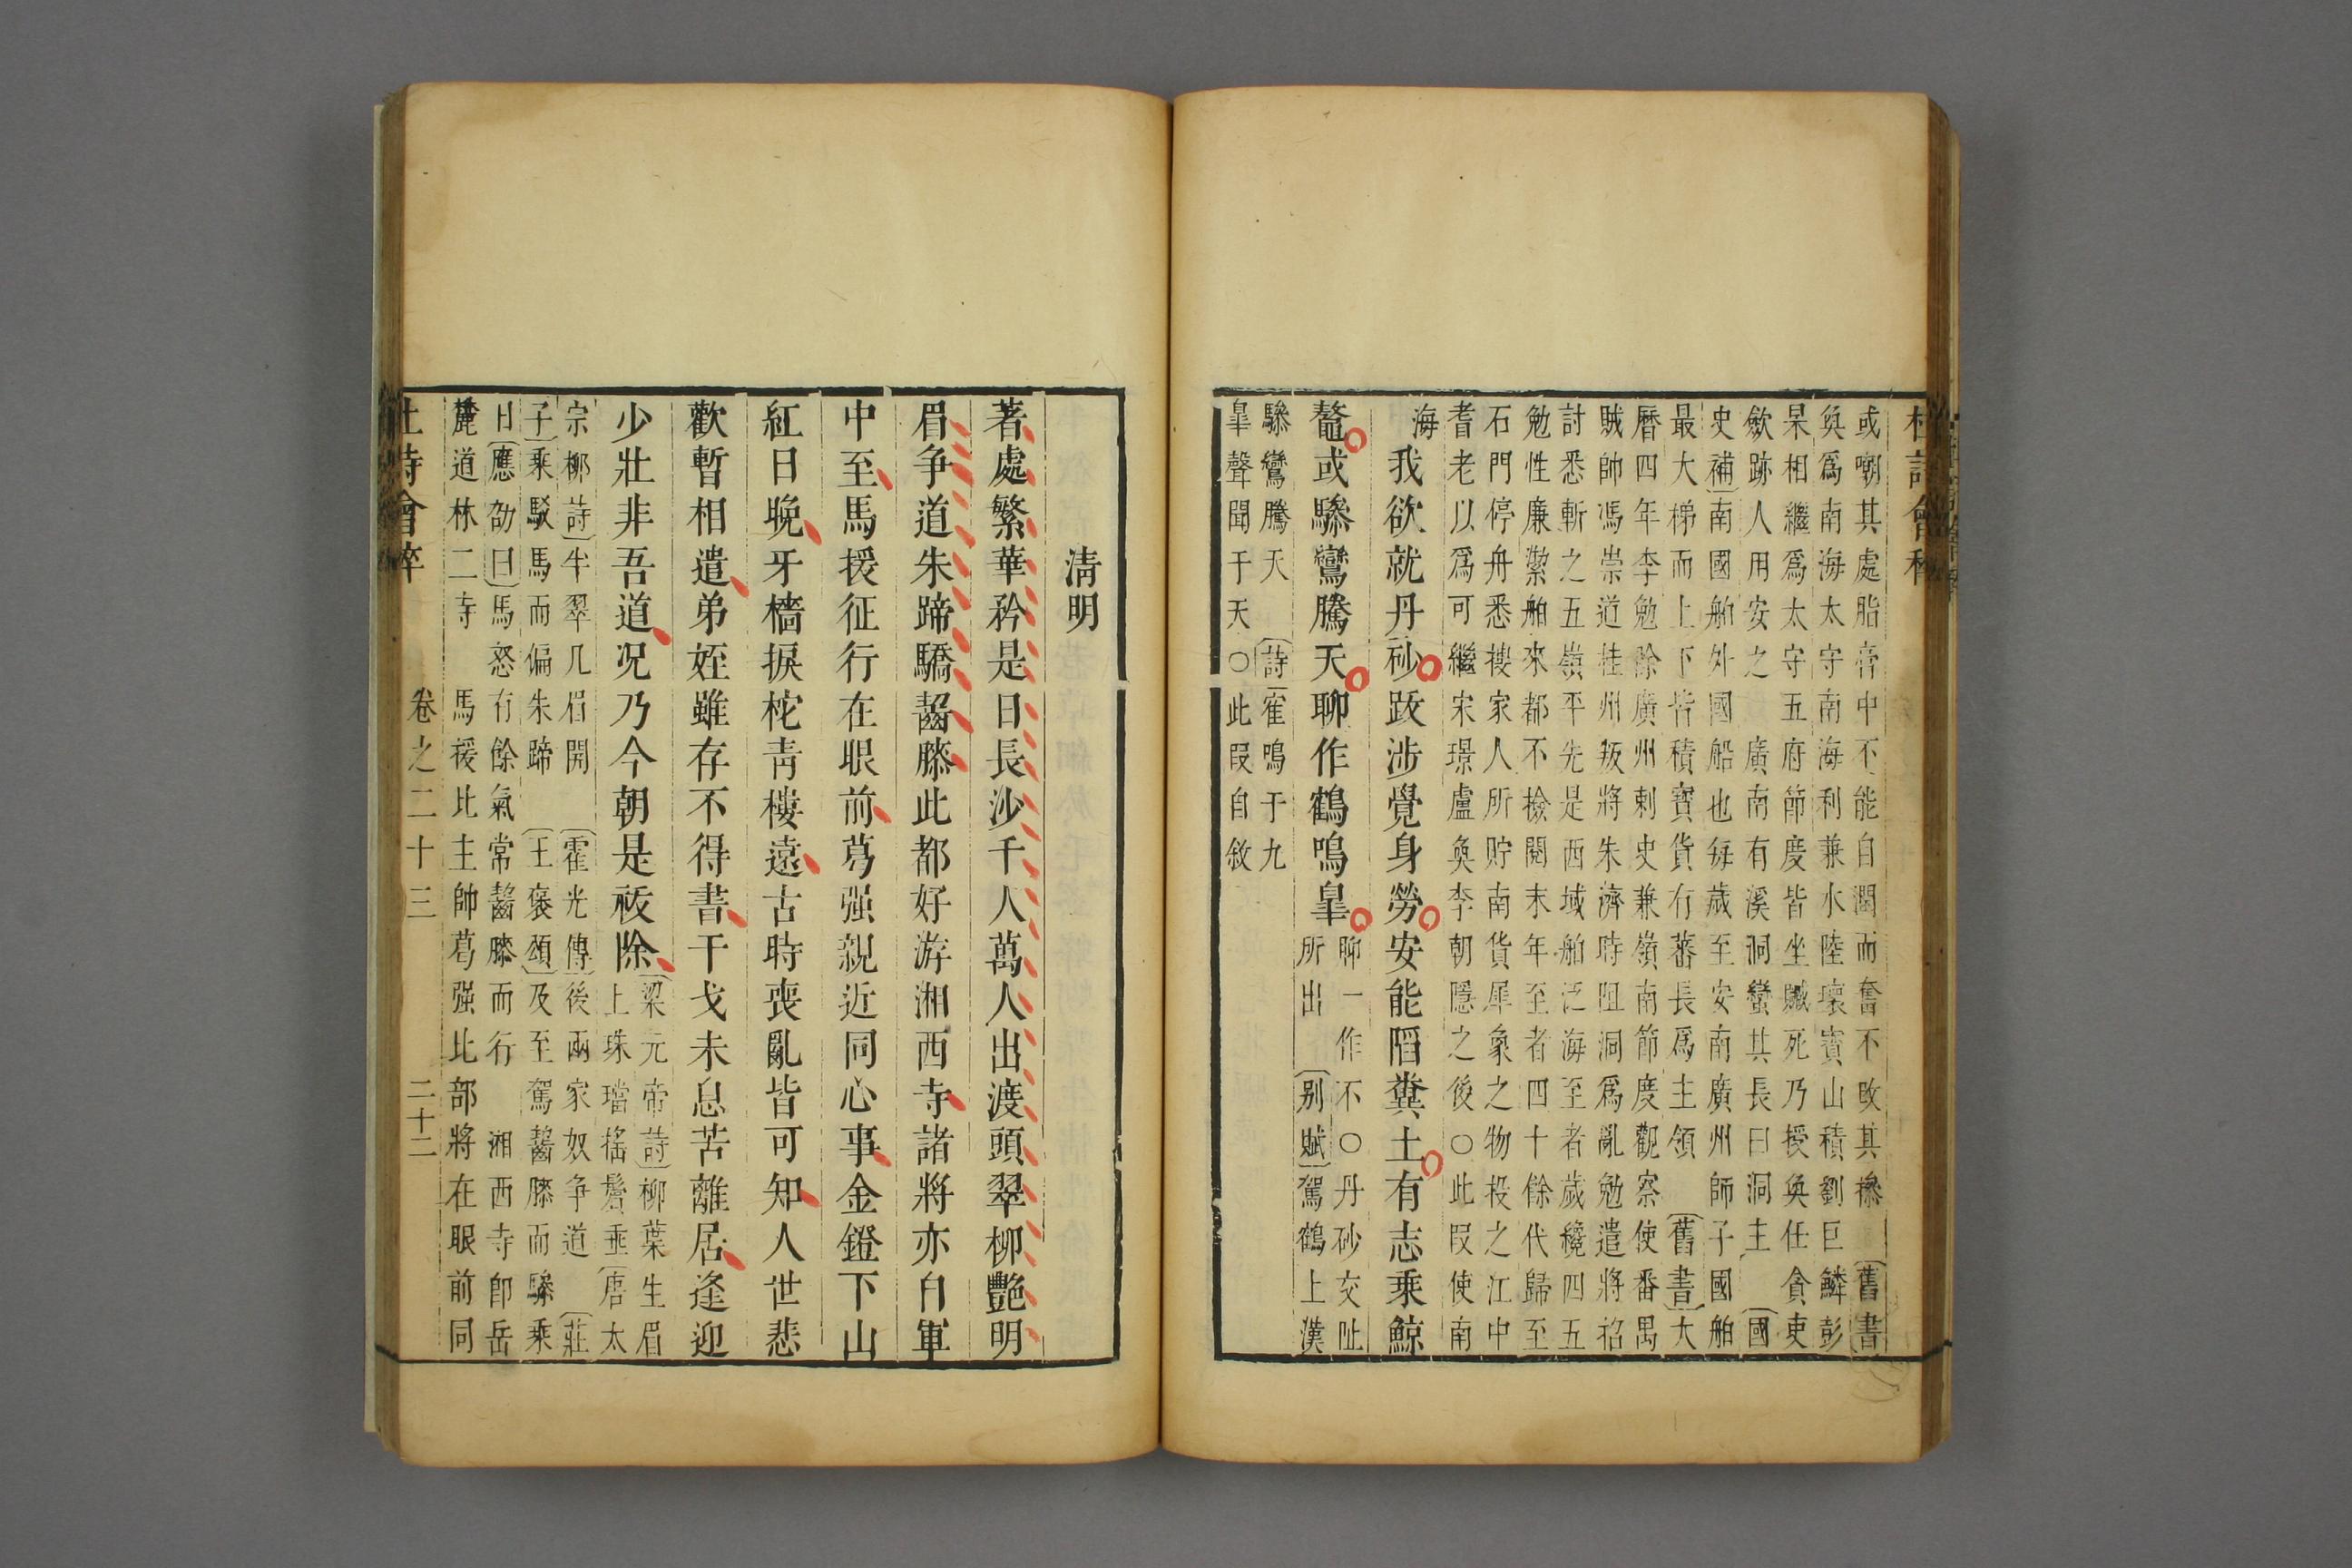 杜詩會稡
或嘲其處脂膏中不能自潤而奮不改其操 舊書
奐爲南海太守南海利兼水陸瓌寳山積劉巨鱗彭
杲相繼爲太守五府節度皆坐贓死乃授奐任貪吏
歛跡人用安之 廣南有溪洞蠻其長曰洞主 國
史補南國舶外國船也每歲至安南廣州師子國舶
最大梯而上下皆積寶貨有蕃長爲主領 舊書大
曆四年李勉除廣州刺史兼嶺南節度觀察使番禺
賊帥馮崇道桂州叛將朱濟時阻洞爲亂勉遣將招
討悉斬之五嶺平先是西域舶泛海至者歲纔四五
勉性廉潔舶來都不檢閱末年至者四十餘代歸至
石門停舟悉搜家人所貯南貨犀象之物投之江中
耆老以爲可繼宋璟盧奐李朝隱之後○此叚使南
海
我欲就丹砂跋涉覺身勞安能陷糞土有志乘鯨
鼇或驂鸞騰天聊作鶴鳴臯
聊一作不○丹砂交趾
所出 别賦駕鶴上漢
驂鸞騰天 詩隺鳴于九
臯聲聞于天○此叚自敘
淸明
著處繁華矜是日長沙千人萬人出渡頭翠柳艷明
眉争道朱蹄驕齧膝此都好游湘西寺諸將亦自軍
中至馬援征行在眼前葛强親近同心事金鐙下山
紅日晚牙檣捩柁靑樓遠古時喪亂皆可知人世悲
歡暫相遣弟姪雖存不得書干戈未息苦離居逢迎
少壯非吾道况乃今朝是祓除
梁元帝詩柳葉生眉
上珠璫揺鬢垂 唐太
宗柳詩半翠几眉開 霍光傳後兩家奴争道 莊
子乘駁馬而偏朱蹄 王褒頌及至駕齧膝而驂乘
旦應劭曰馬怒有餘氣常齧膝而行 湘西寺卽岳
麓道林二寺 馬援比主帥葛强比部將在眼前同
杜詩會稡 卷之二十三 二十二